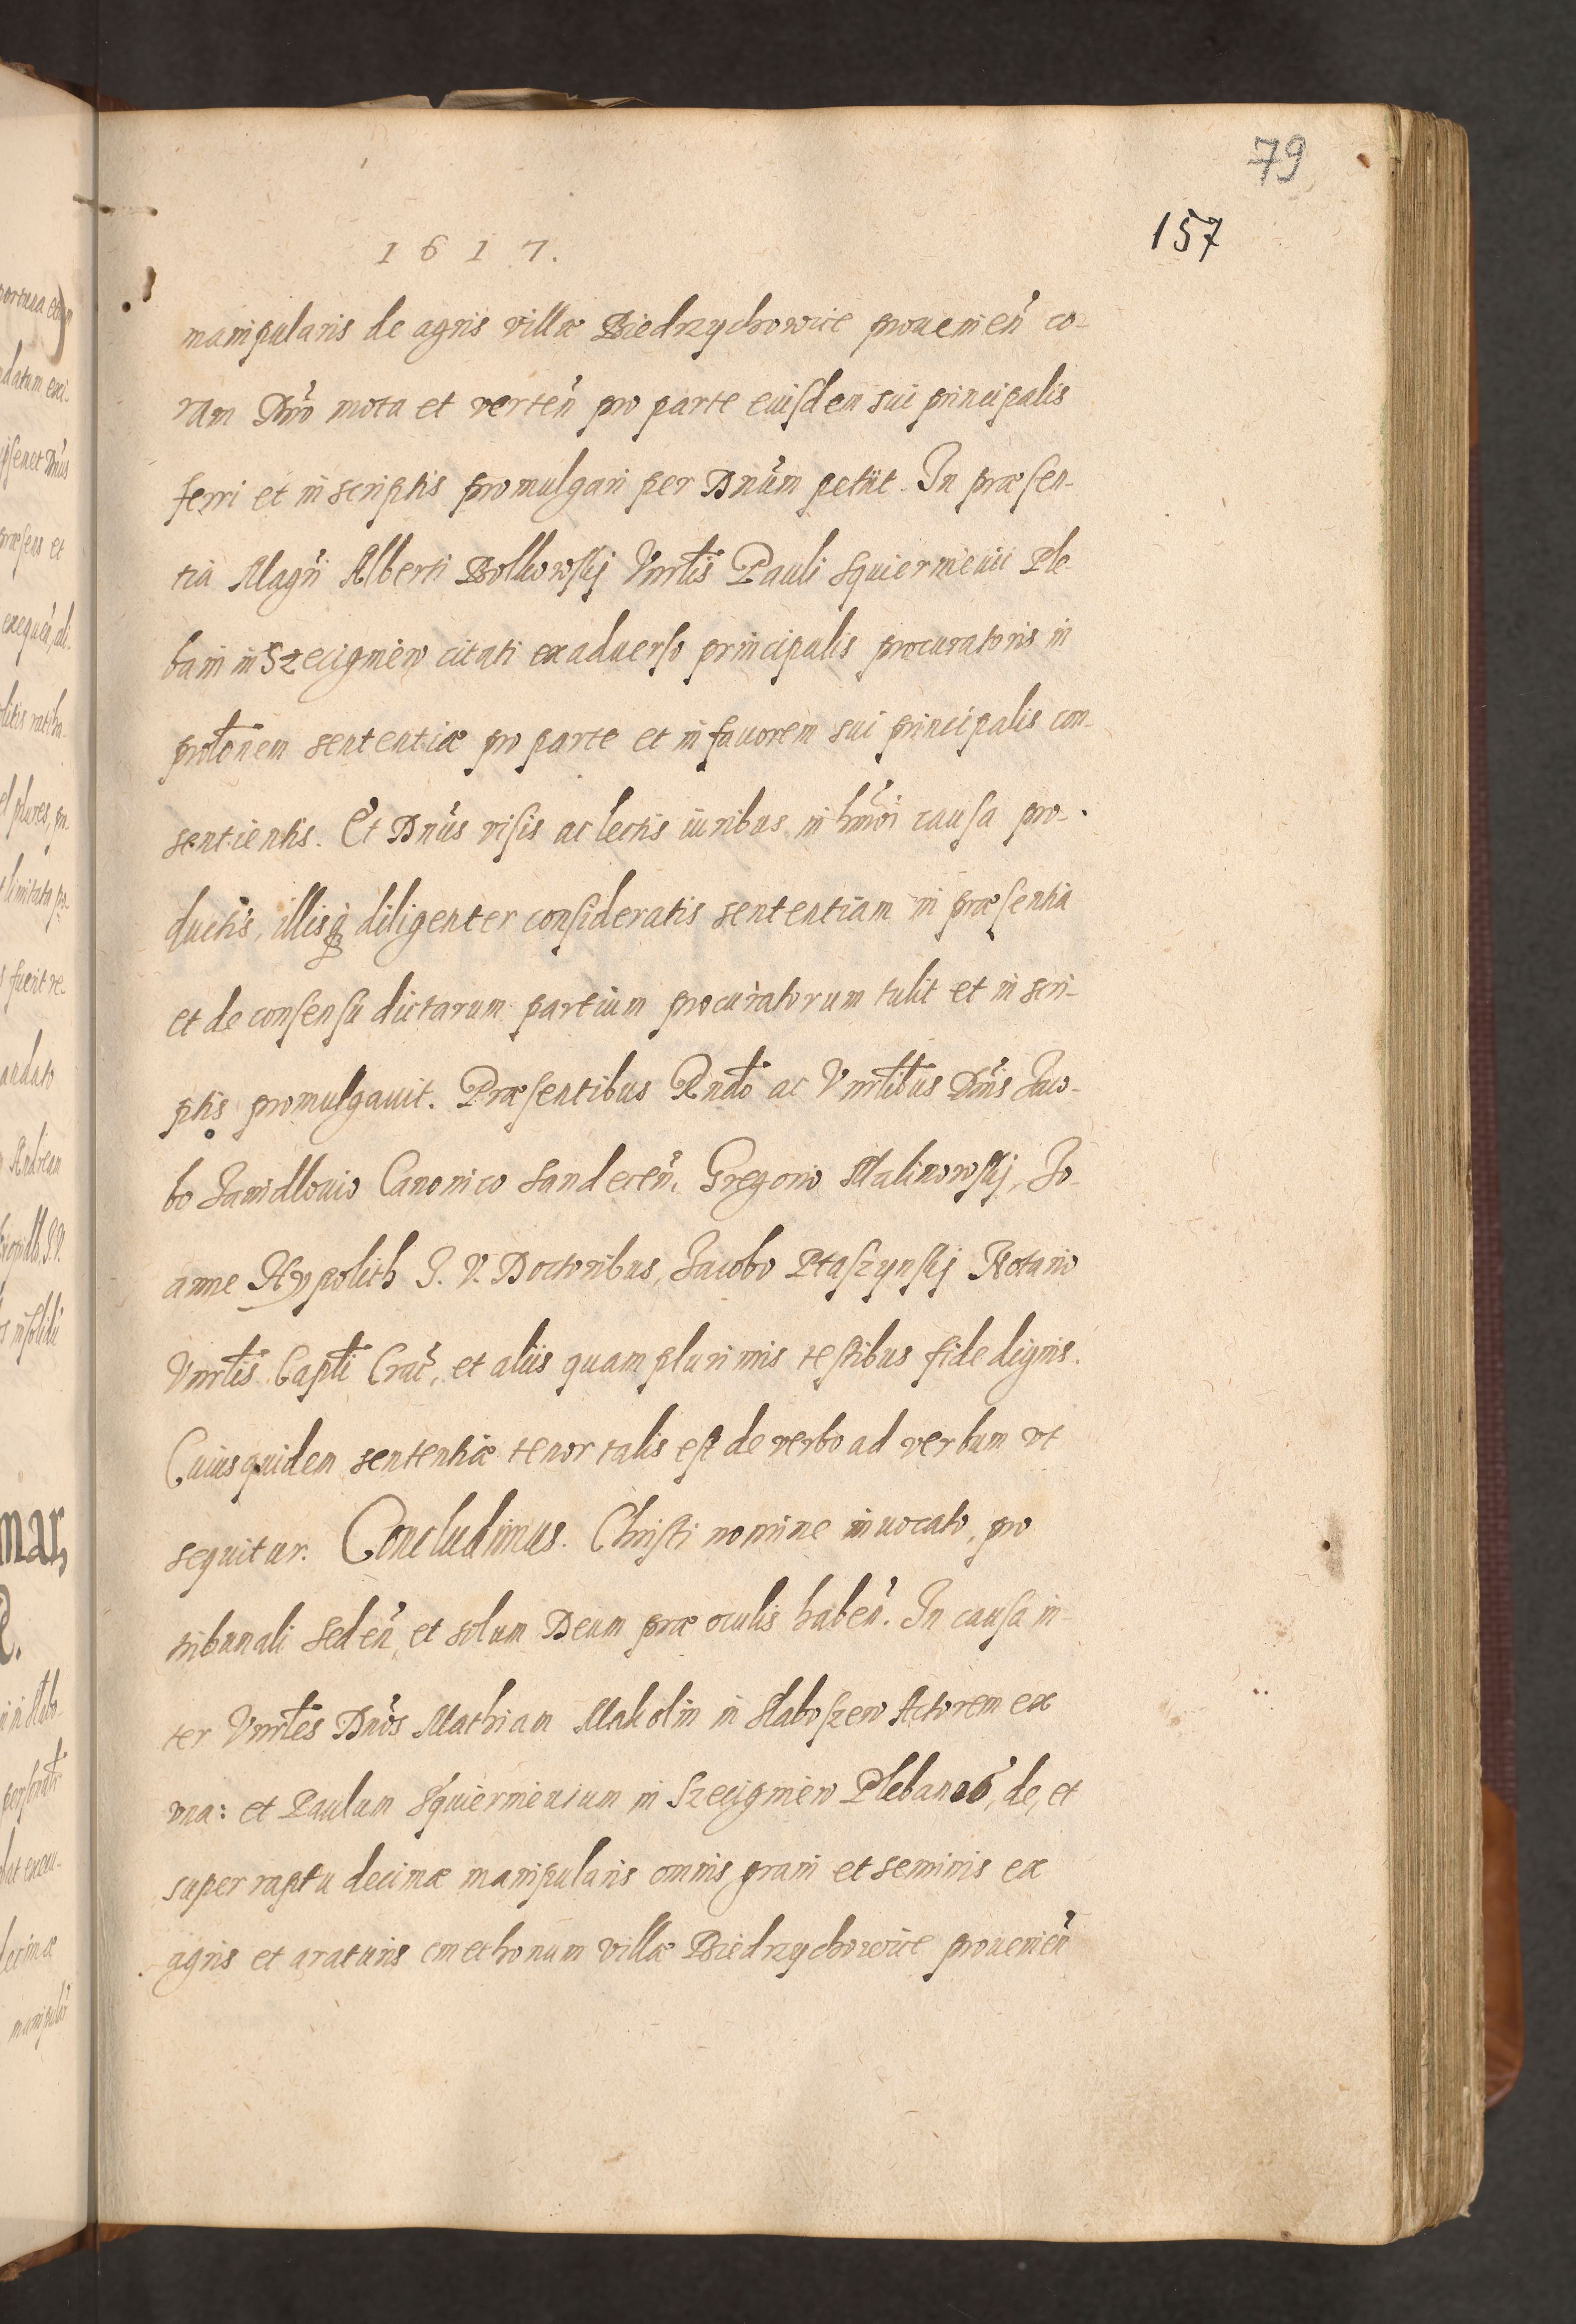 79
157
1617.
manipularis de agris villæ Biedrzychowice prouenień co-
ram Dńo mota et verteń pro parte eiusdem sui principalis
ferri et in scriptis promulgari per Dnúm petiit. In præsen-
tia Magri Alberti Bolkowskj Vnrlis Pauli Squiermeuii Ple-
bani in Szczigmew citati ex aduerso principalis procuratoris in
prolonem sententiæ pro parte et in fauorem sui principalis con-
sentientis. Et Dnús visis ac lectis iuribus in hmoi causa pro-
ductis, illisq diligenter consideratis sententiam in præsentia
et de consensu dictarum partium procuratorum tulit et in scri-
ptis promulgauit. Præsentibus Rndo ac Vnrlibus Dnis Jaco-
bo Janidlouio Canonico Sandeceń, Gregorio Malinowskj, Jo-
anne Hypolith J. V. Doctoribus, Jacobo Ptaszynskj Notario
Vnrlis Capli Crać, et aliis quam plurimis testibus fide dignis.
Cuiusquidem sententiæ tenor talis est de verbo ad verbum vt
sequitur. Concludimus. Christi nomine inuocato, pro
tribunali sedeń, et solum Deum præ oculis habeń. In causa in-
ter Vnrles Dnós Mathiam Makolin in Slaboszew Actorem ex
vna: et Paulum Squiermeuium in Szczigmew Plebanos, de, et
super raptu decimæ manipularis omnis grani et seminis ex
agris et araturis cmethonum villæ Biedrzychowice prouenień